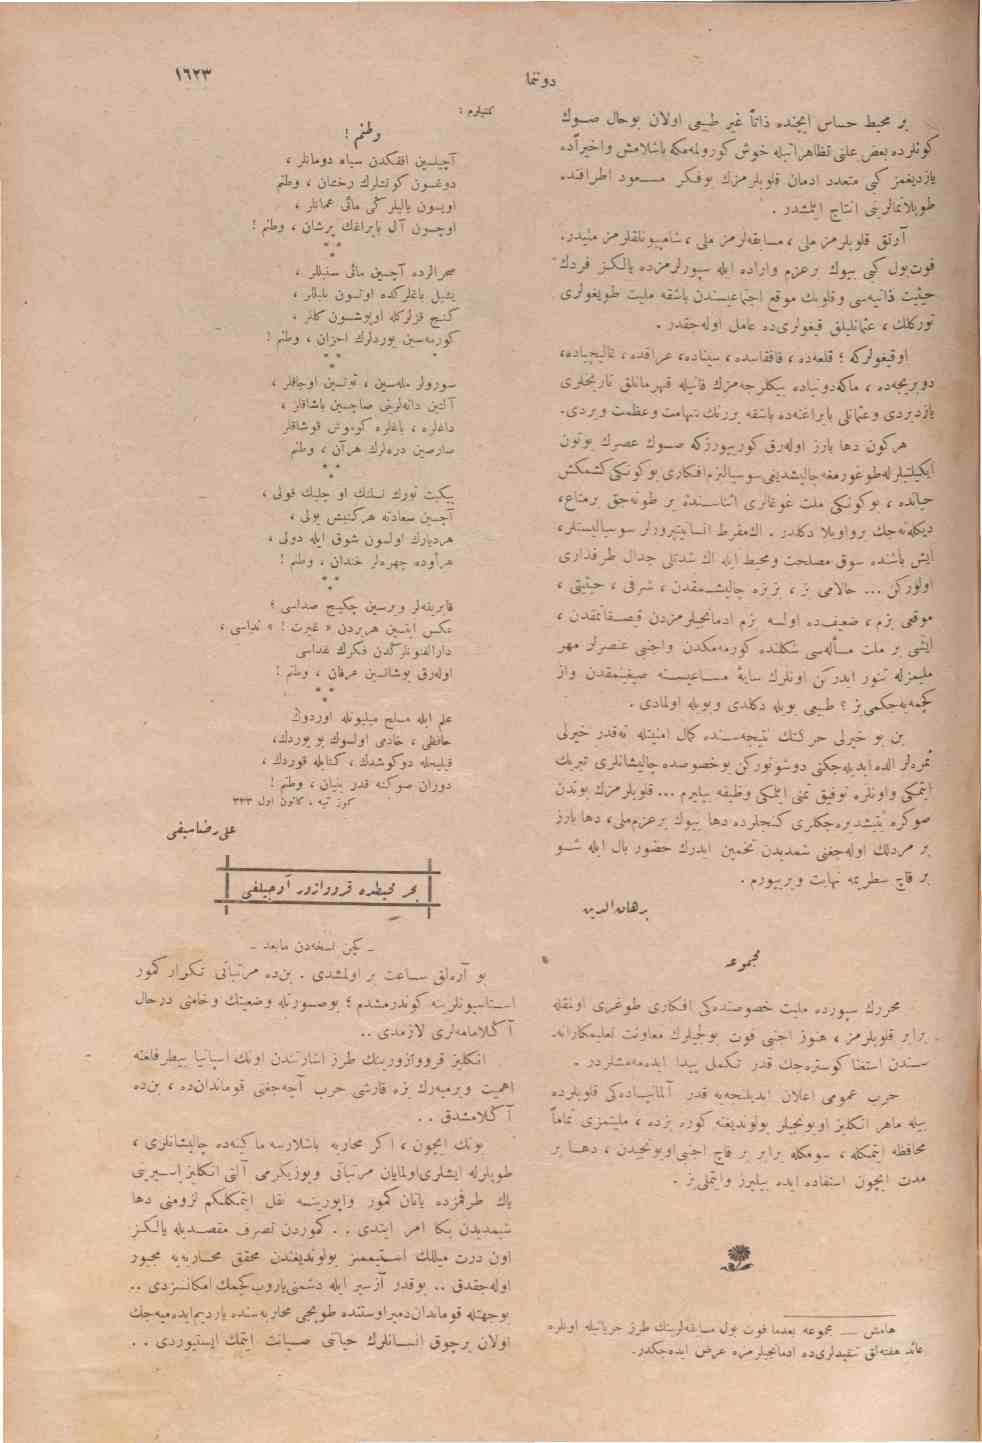 دوننما
١٦٢٣
بر محیط حساس ایچنده ذاتاً غیر طبیعی اولان بوحال صوك
كونلرده بعض علنی تظاهراتیله خوش كورولمه‌مكه باشلامش واخیراً ده
یازدیغمز كبی متعدد ادمان قلوبلرمزك بوفكر مسعود اطرافنده
طوپلانمالرینی انتاج ایتمشدر .
آرتق قلوبلرمز ملی ، مسابقه‌لرمز ملی ، شامپیونلقلرمز ملیدر.
فوت‌بول كبی بیوك برعزم واراده ایله سپورلرمزده یالكز فردك
حیثیت ذاتیه‌سی وقلوبك موقع اجتماعیسندن باشقه ملیت طویغولری
توركلك ، عثمانلیلق قیغولری‌ده عامل اوله‌جقدر .
اوقیغولركه ؛ قلعه‌ده ، قافقاسده ، سیناده ، عراقده ، غالیچیاده،
دوبریجه‌ده ، ماكه‌دونیاده بیكلرجه‌مزك قانیله قهرمانلق تاریخلری
یازدیردی وعثمانلی بایراغنه‌ده باشقه بررنك شهامت وعظمت ویردی.
هركون دها بارز اوله‌رق كوریپورزكه صوك عصرك بوتون
ایكیلتیلرله‌طوغورمغه‌چالیشدیغی‌سوسیالیزم‌افكاری بوكونكی كشمكش
حیاتده ، بوكونكی ملت غوغالری اثناسنده بر طونه‌جق برمتاع،
دیكله‌نه‌جك برواویلا دكلدر . اك‌مفرط انسانیتپرورلر سوسیالیستلر،
ایش باشنده سوق مصلحت ومحیط ایله اك شدتلی جدال طرفداری
اولوركن ... حالامی بز ، بزیزه چالیشمقدن ، شرفی ، حیثیتی ،
موقعی بزم ، ضعیف‌ده اولسه بزم ادمانجیلرمزدن قیصقانمقدن ،
ایشی بر ملت مسأله‌سی شكلنده كورمه‌مكدن واجنبی عنصرلر مهر
ملیمزله تنور ایدركن اونلرك سایهٔ مساعیسنه صیغینمقدن واز
كچمه‌یه‌جكمی‌یز ؟ طبیعی بویله دكلدی وبویله اولمادی .
بن بو خیرلی حركتك نتیجه‌سنده كمال امنیتله نه‌قدر خیرلی
ثمره‌لر الده ایدیله‌جكنی دوشونوركن بوخصوصده چالیشانلری تبریك
ایتمكی واونلره توفیق تمنی ایتمكی وظیفه بیلیرم ... قلوبلرمزك بوندن
صوكره یتیشدیره‌جكلری كنجلرده دها بیوك برعزم‌ملی، دها بارز
بر مردلك اوله‌جغنی شمدیدن تخمین ایدرك حضور بال ایله شو
بر قاچ سطریمه نهایت ویریپورم .
برهان الدین
مجموعه
محررك سپورده ملیت خصوصنده‌كی افكاری طوغری اونقله
برابر قلوبلرمز ، هنوز اجنبی فوت بولجیلرك معاونت تعلیمكارانه
سندن استغنا كوستره‌جك قدر تكمل پیدا ایده‌مه‌مشلردر .
حرب عمومی اعلان ایدیلنجه‌یه قدر آلمانیاده‌كی قلوبلرده
بیله ماهر انكلیز اویونجیلر بولوندیغنه كوره بزده ، ملیتمزی تماماً
محافظه ایتمكله ، سومكله برابر بر قاچ اجنبی‌اویونجیدن ، دها بر
مدت ایچون استفاده ایده بیلیرز وایتملی‌یز .
هامش — مجموعه بعدما فوت بول مسابقه‌لرینك طرز جریانیله اونلره
عائد هفته‌لق تنقیدلری‌ده ادمانجیلرمزه عرض ایده‌جكدر.
وطنم !
آچیلسین افقكدن سیاه دومانلر ،
دوغسون كونشلرك رخشان ، وطنم
اویسون یالیلركی مائی عمانلر ،
اوچسون آل بایراغك پرشان ، وطنم !
* *
*
صحرالرده آچسین مائی سنبللر ،
یشیل باغلركده اوتسون بلبللر ،
كنج قزلركله اویوشسون كللر ،
كورمه‌سین یوردلرك احزان ، وطنم !
* *
*
سورولر مله‌سین ، توتسین اوجاقلر ،
آلتین دانه‌لرینی صاچسین باشاقلر ،
داغلره ، باغلره كوموش قوشاقلر
صارصین دره‌لرك هرآن ، وطنم
* *
ییكیت تورك نسلنك او چلیك قولی ،
آچسین سعادته هركنیش یولی ،
هردیارك اولسون شوق ایله دولی ،
هرأوده چهره‌لر خندان ، وطنم !
* *
فابریقه‌لر ویرسین چكیج صداسی ؛
عكس ایتسین هریردن « غیرت ! » نداسی ،
دارالفنونلركدن فكرك غداسی
اوله‌رق بوشانسین عرفان ، وطنم !
* *
*
علم ایله مسلح میلیونله اوردوك
حافظی ، خادمی اولسوك بو یوردك،
قیلیجله دوكوشدك ، كتابله قوردك ،
دوران صوكنه قدر بنیان ، وطنم !
كوز تپه ، كانون اول ٣٣٣
علی رضاسیفی
بحر محیطده قرووازور آوجیلغی
ـ كچن نسخه‌دن مابعد ـ
بو آره‌لق ساعت بر اولمشدی . بن‌ده مرتباتی تكرار كمور
استاسیونلرینه كوندرمشدم ؛ بوصورتله وضعیتك وخامتی درحال
آكلامامه‌لری لازمدی ..
انكلیز قرووازورینك طرز اشارتندن اونك اسپانیا بیطرفلغنه
اهمیت ویرمیه‌رك بزه قارشی حرب آچه‌جغنی قوماندان‌ده ، بن‌ده
آكلامشدق . .
بونك ایچون ، اكر محاربه باشلارسه ماكینه‌ده چالیشانلری ،
طوپلرله ایشلری‌اولمایان مرتباتی ویوزیكرمی آلتی انكلیزاسیرینی
یاك طرفمزده یاتان كمور واپورینه نقل ایتمكلكم لزومنی دها
شمدیدن بكا امر ایتدی . . كموردن تصرف مقصدیله یالكز
اون درت میللك استیممز بولوندیغندن محقق محاربه‌یه مجبور
اوله‌جقدق .. بوقدر آزسیر ایله دشمنی‌یاروب‌كچمك امكانسزدی ..
بوجهتله قوماندان‌دمیراوستنده طوپجی محاربه‌سنده یاردیم‌ایده‌میه‌جك
اولان برچوق انسانلرك حیاتنی صیانت ایتمك ایستیوردی . .